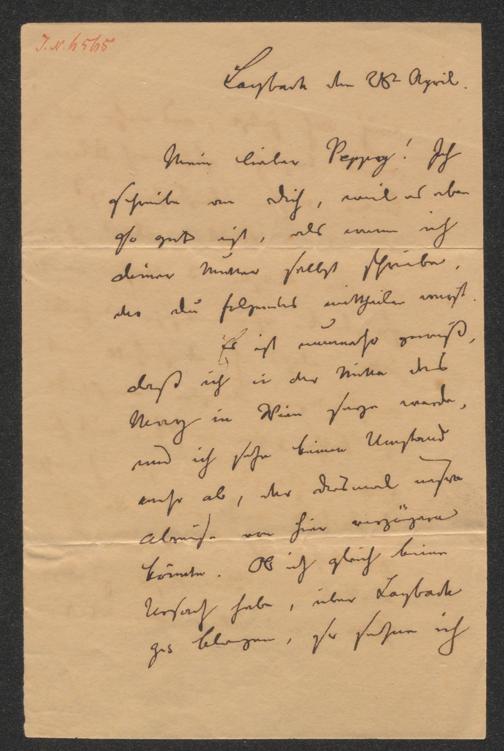 I.N. 6565
Laybach den 28t April.
Mein lieber Peppy! Ich
schreibe an dich, weil es eben
so gut ist, als wenn ich
deiner Mutter selbst schreibe,
der du folgendes mittheilen wirst.
Es ist nunmehr gewiß,
daß ich in der Mitte des
May in Wien seyn werde,
und ich sehe keinen Umstand
mehr ab, der diesmal unsre
Abreise von hier verzögern
könnte. Ob ich gleich keine
Ursach habe, über Laybach
zu klagen, so sehne ich